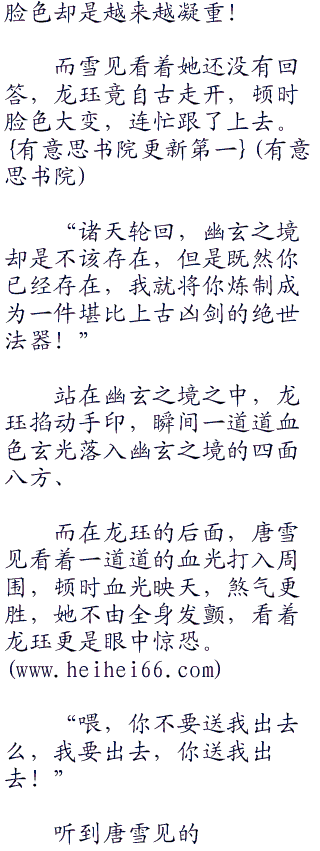 脸色却是越来越凝重！
而雪见看着她还没有回
答，龙珏竟自古走开，顿时
脸色大变，连忙跟了上去。
{有意思书院更新第一}(有意
思书院)
“诸天轮回，幽玄之境
却是不该存在，但是既然你
已经存在，我就将你炼制成
为一件堪比上古凶剑的绝世
法器！”
站在幽玄之境之中，龙
珏掐动手印，瞬间一道道血
色玄光落入幽玄之境的四面
八方、
而在龙珏的后面，唐雪
见看着一道道的血光打入周
围，顿时血光映天，煞气更
胜，她不由全身发颤，看着
龙珏更是眼中惊恐。
(www.heihei66.com)
“喂，你不要送我出去
么，我要出去，你送我出
去！”
听到唐雪见的